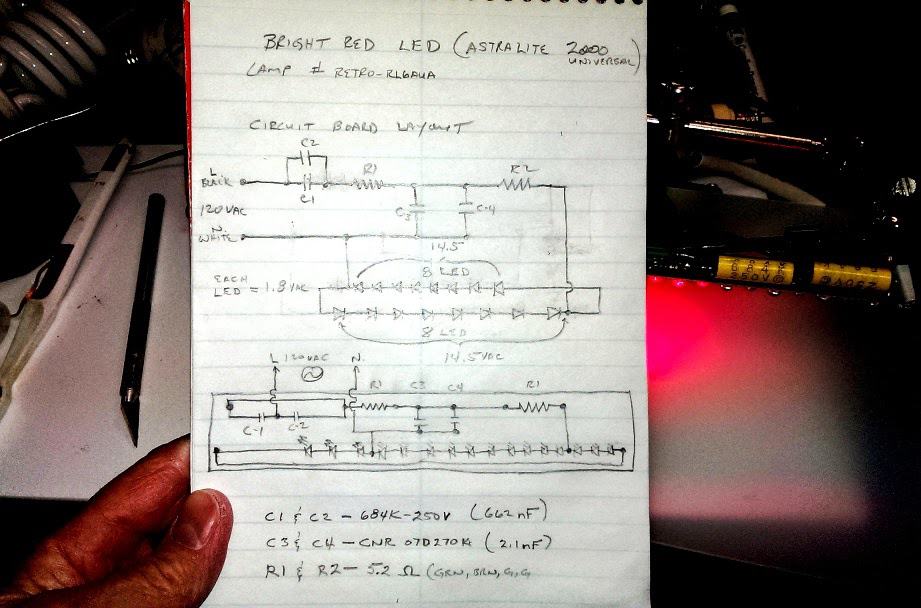 BRIGHT RED LED (ASTRALITE 2000
UNIVERSAL)
LAMP # RETRO-RL6AUA
CIRCUIT BOARD LAYOUT
C2
L. BLACK
C1
R1
R2
120 VAC
C3
C-4
N. WHITE
14.5
8 LED
EACH
LED = 1.8 VAC
8 LED
14.5 VAC
L 120VAC N.
R1 C3 C4 R1
C-1 C-2
C1 & C2 - 684K-250V (662nF)
C3 & C4 - CNR 07D270K (2.1nF)
R1 & R2 - 5.2 Ω (GRN, BRN, G, G
250V